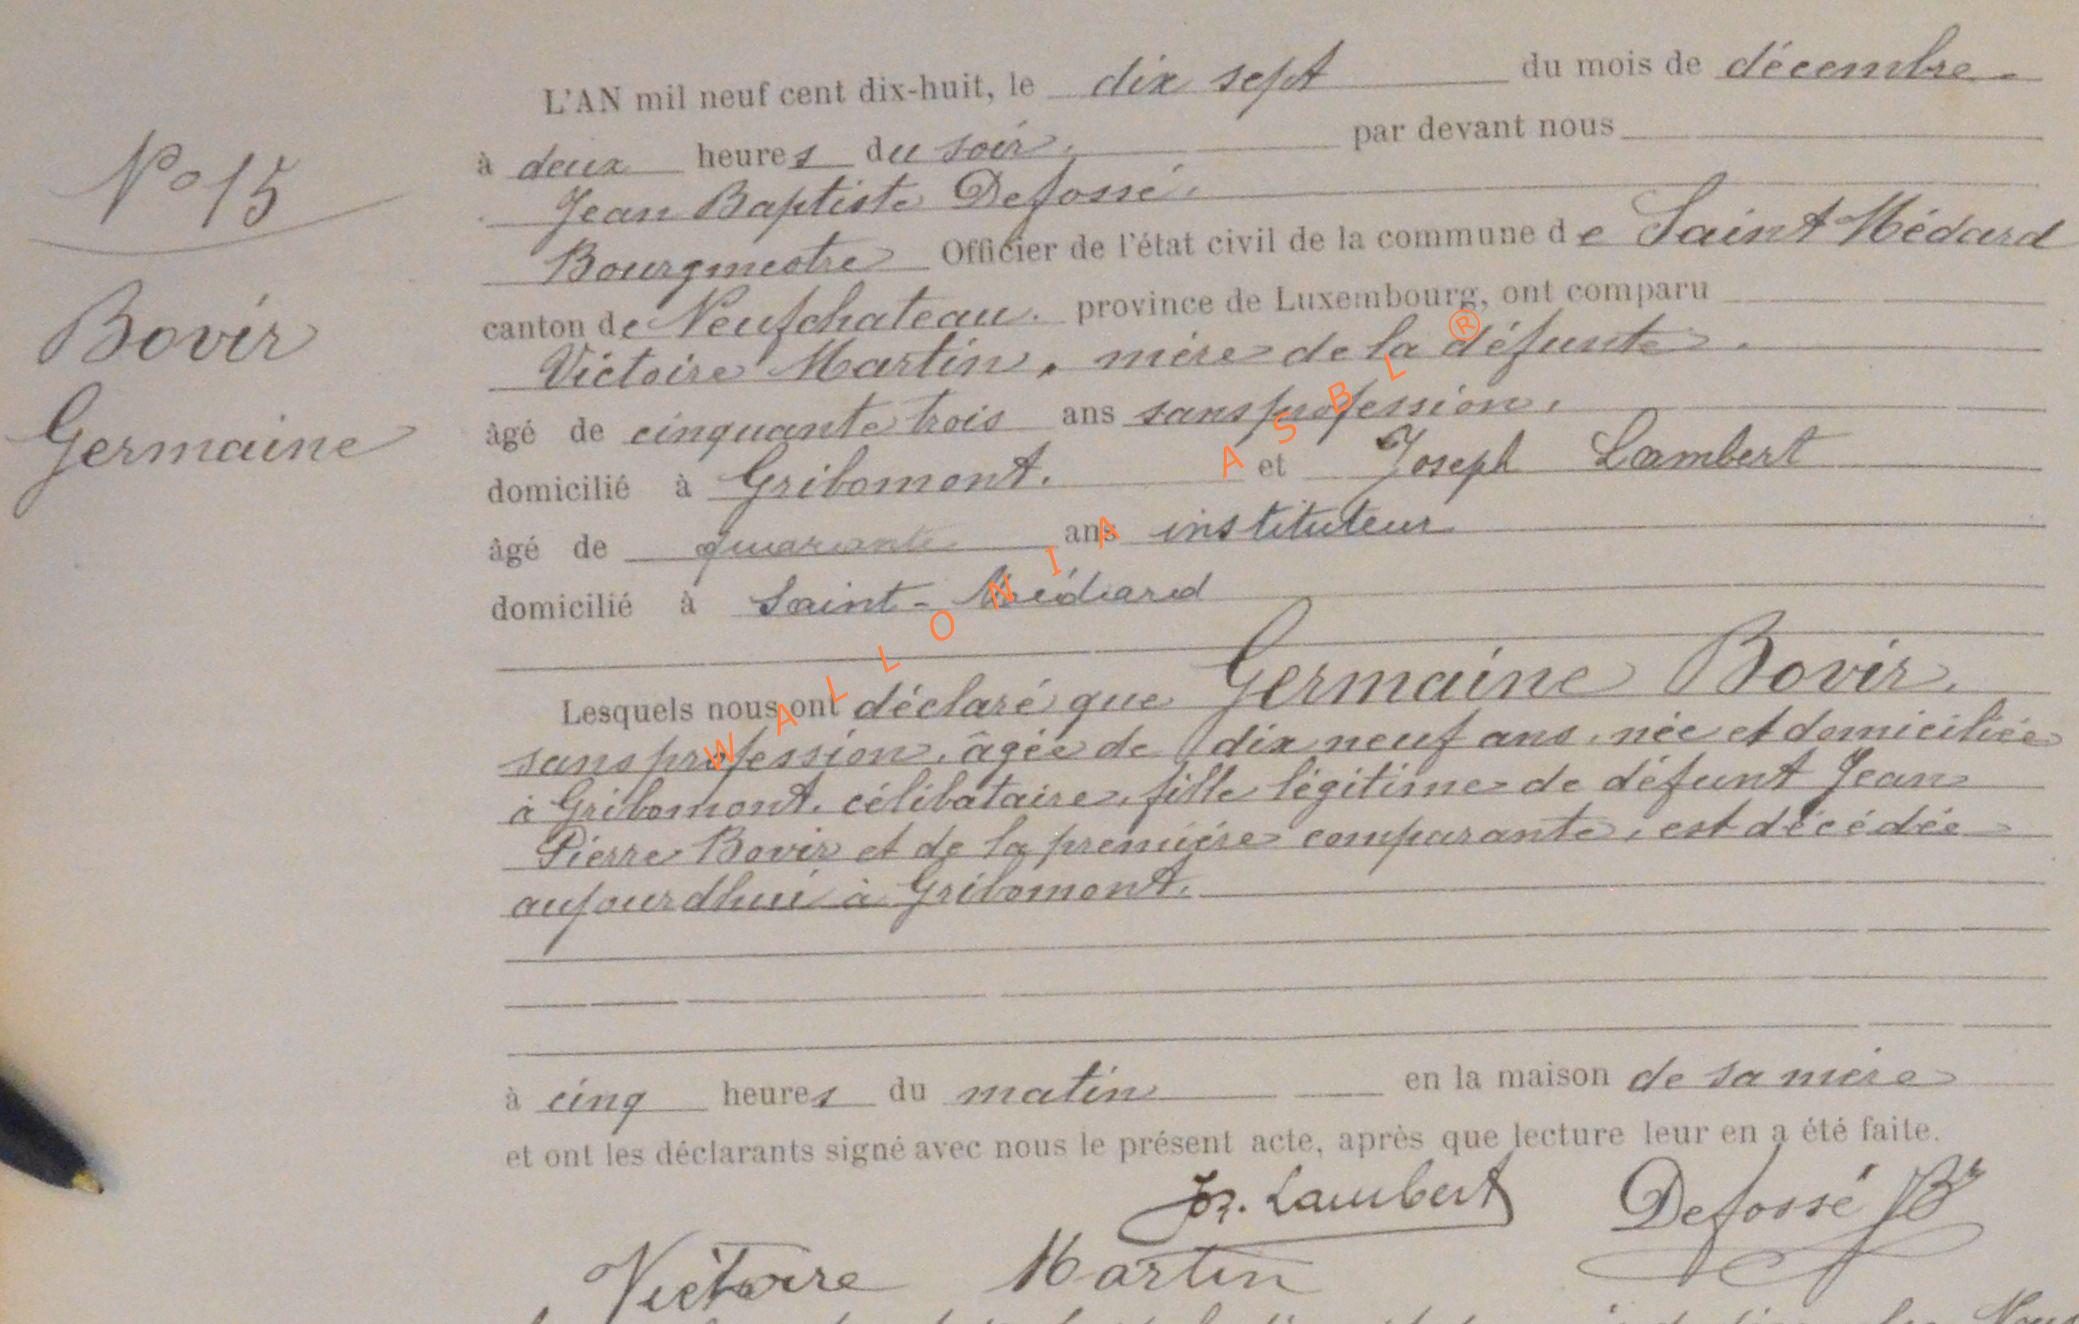 L'AN mil neuf cent dix-huit, le dix sept du mois de décembre.
à deux heures du soir, par devant nous
N° 15
Jean Baptiste Defossé,
Bourgmestre Officier de l'état civil de la commune de Saint Médard
Bovir
canton de Neufchateau. province de Luxembourg, ont comparu
Victoire Martin, mère de la défunte.
Germaine
âgé de cinquante trois ans sans profession,
domicilié à Gribomont. et Joseph Lambert
âgé de quarante ans instituteur
domicilié à Saint-Médard
Lesquels nous ont déclaré que Germaine Bovir,
sans profession, âgée de dix neuf ans, née et domiciliée
à Gribomont, célibataire, fille légitime de défunt Jean
Pierre Bovir et de la première comparante, est décédée
aujourdhui à Gribomont.
à cinq heures du matin en la maison de sa mère
et ont les déclarants signé avec nous le présent acte, après que lecture leur en a été faite.
Jos. Lambert Defossé Br
Victoire Martin
WALLONIA ASBL ®